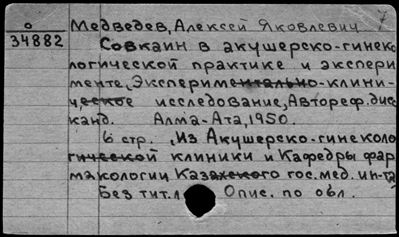 о
34882
Медведев, Алексей Яковлевич 7
Совкаин в акушерско-гинеко
логической практике и экспери
менте, Экспериментально-клини-
ческое исследование, Автореф. дисс
канд. Алма-Ата, 1950.
6 стр. (Из Акушерско-гинеколо
гической клиники и Кафедры фар
макологии Казахского гос. мед. ин-та
Без тит. л Опис. по обл.